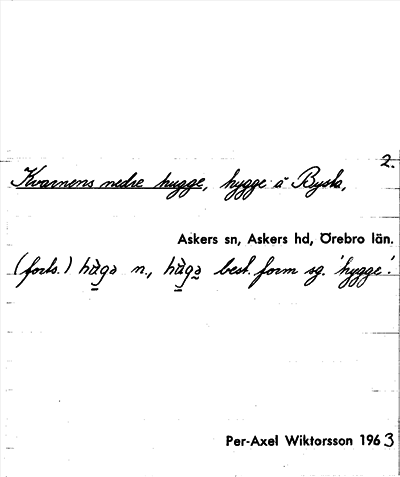 2.
Kvarnens nedre hygge, hygge å Bysta,
Askers sn, Askers hd, Örebro län.
(forts.) n., best. form sg. 'hygge'.
Per-Axel Wiktorsson 1963